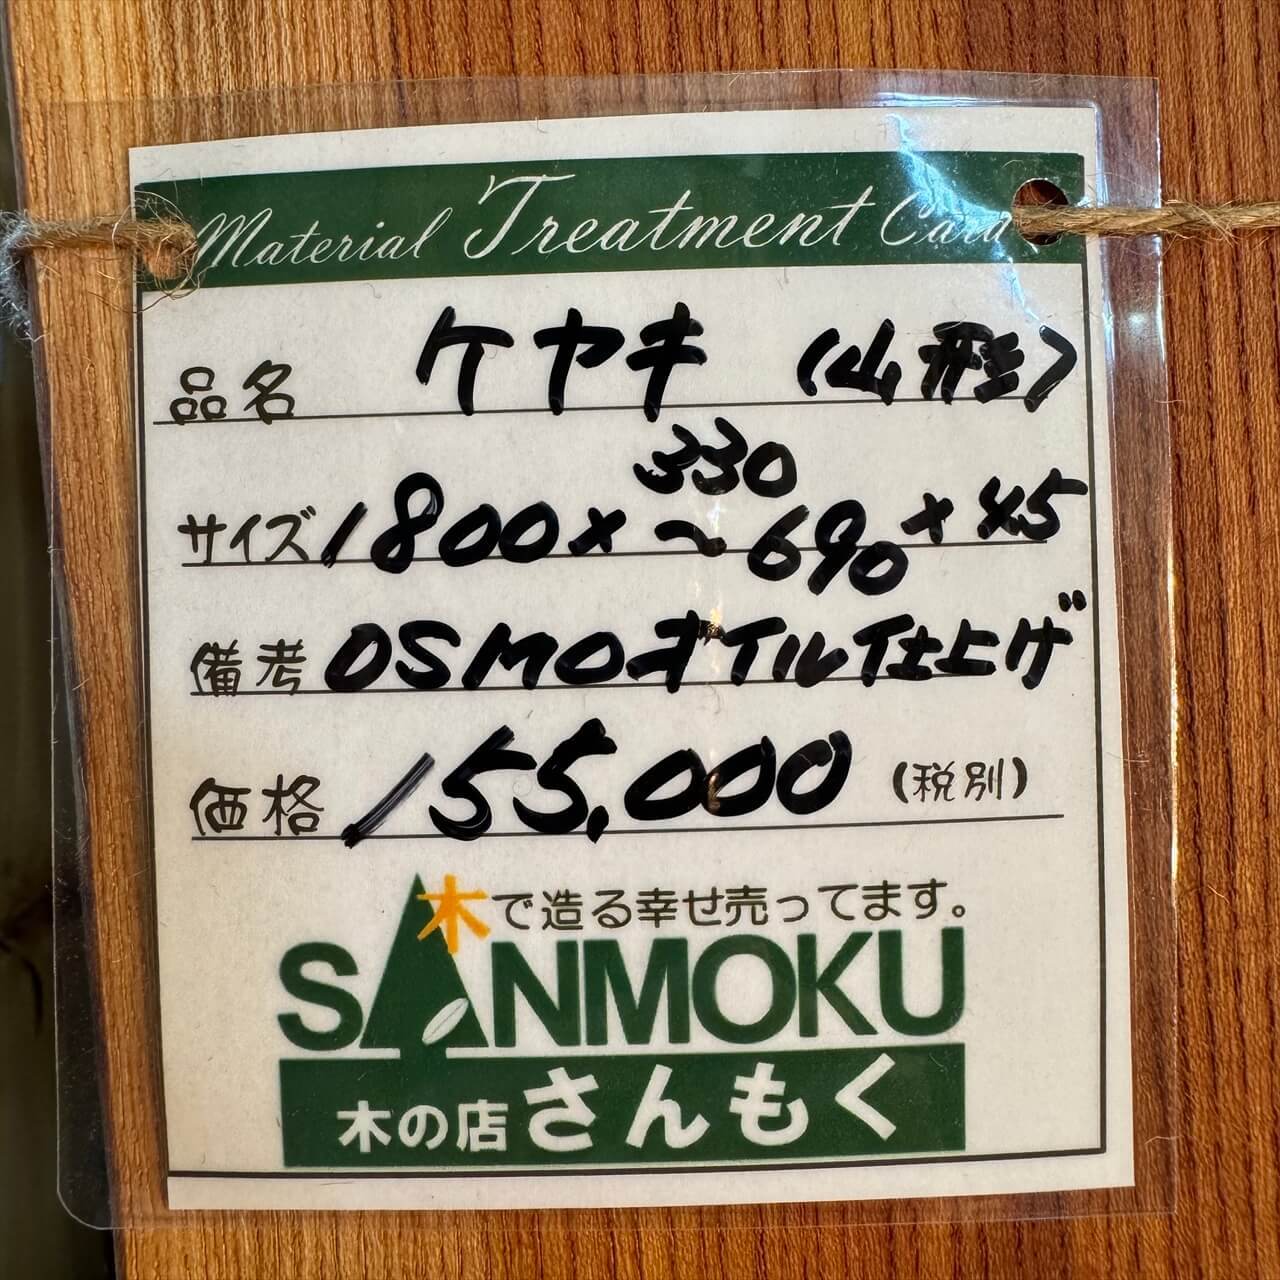 Material Treatment Card
品名 ケヤキ (山形)
サイズ 1800×330~690×45
備考 OSMOオイル仕上げ
価格 155,000 (税別)
木で造る幸せ売ってます。
SANMOKU
木の店さんもく